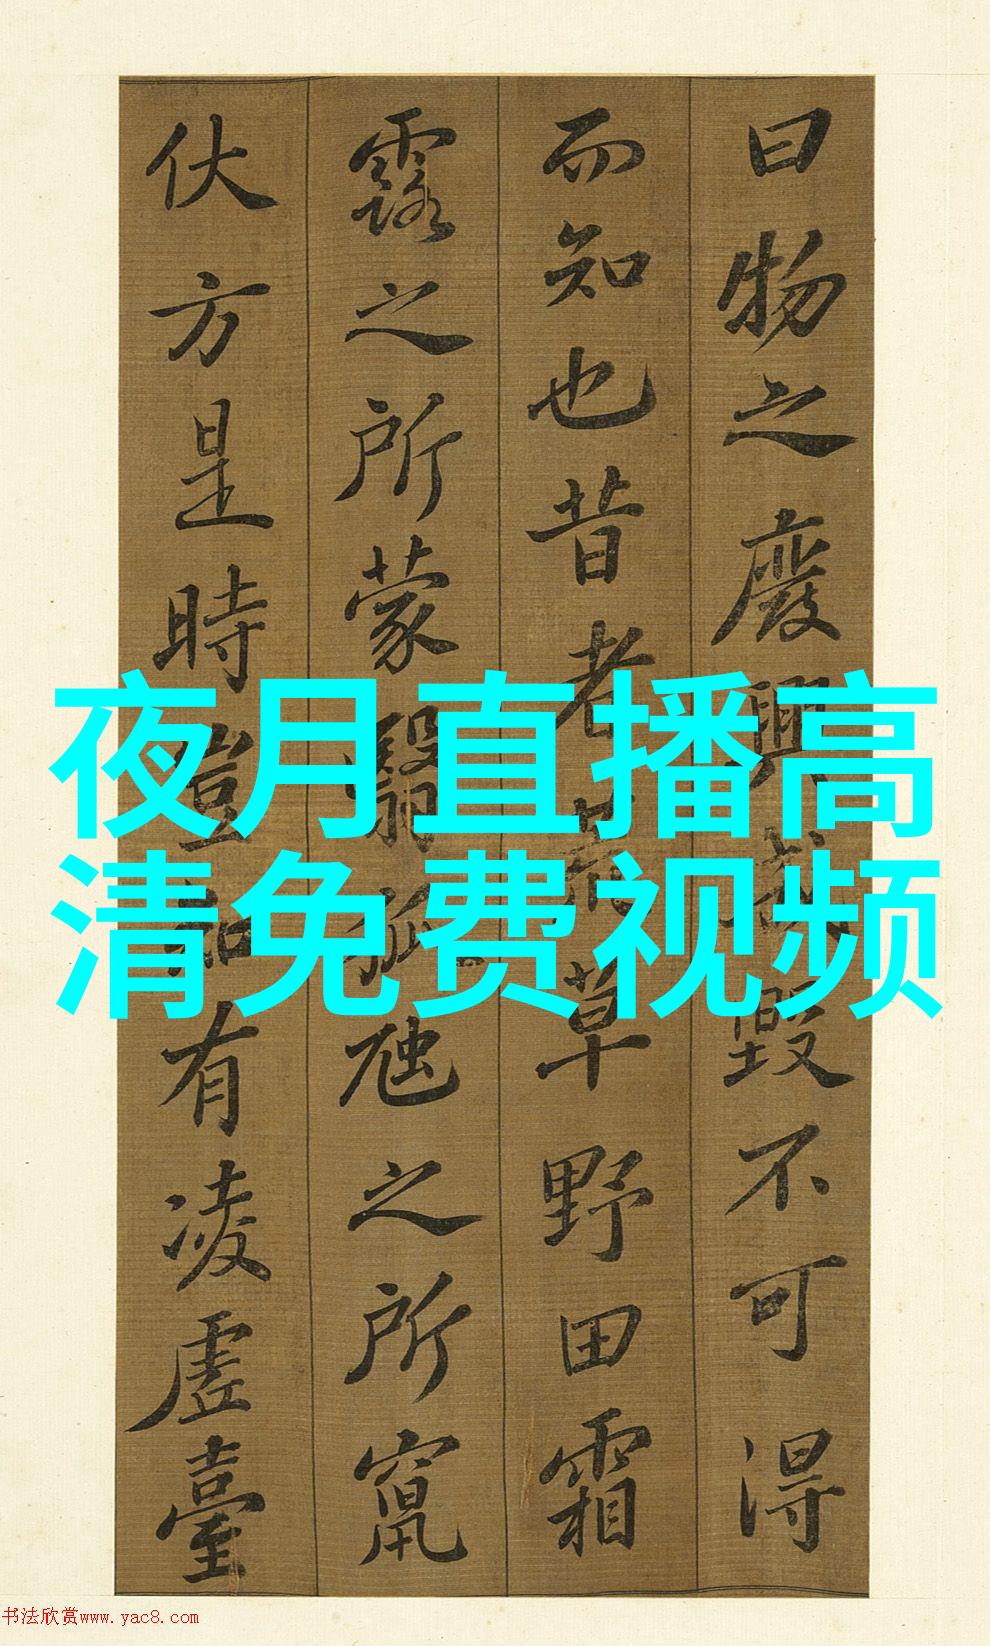 曰物之廢興成毀不可得
而知也昔者荒草野田霜
露之所蒙翳狐虺之所竄
伏方是時豈知有凌虛臺
夜月直播高
清免费视频
书法欣赏www.yac8.com